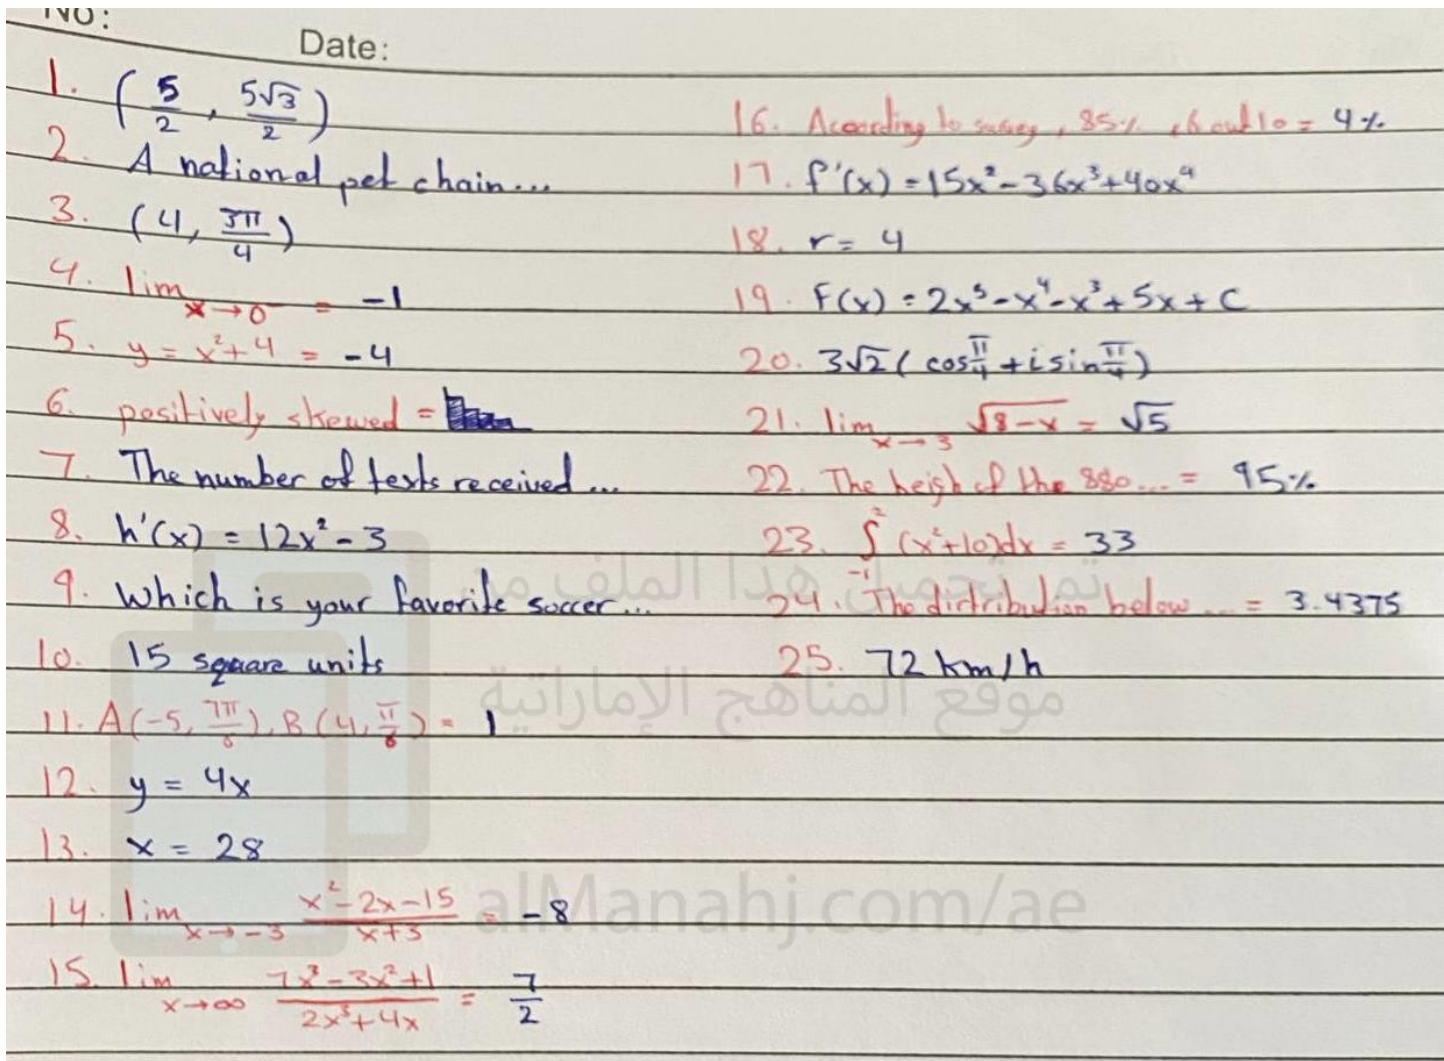 No:
Date:
1. (5/2, 5√3/2)
2. A national pet chain...
3. (4, 3π/4)
4. lim x→0⁻ = -1
5. y = x²+4 = -4
6. positively skewed =
7. The number of texts received...
8. h'(x) = 12x² - 3
9. Which is your favorite soccer...
10. 15 square units
11. A(-5, 7π/6), B(4, π/6) = 1
12. y = 4x
13. x = 28
14. lim x→-3 (x²-2x-15)/(x+3) = -8
15. lim x→∞ (7x³-3x²+1)/(2x³+4x) = 7/2
16. According to survey, 85% out 10 = 4%
17. f'(x) = 15x²-36x³+40x⁴
18. r = 4
19. F(x) = 2x⁵-x⁴-x³+5x+C
20. 3√2 (cos π/4 + i sin π/4)
21. lim x→3 √8-x = √5
22. The heigh of the 880... = 95%
23. ∫₋₁² (x²+10)dx = 33
24. The dirtribution below... = 3.4375
25. 72 km/h
تم تحميل هذا الملف من
موقع المناهج الإماراتية
alManahj.com/ae